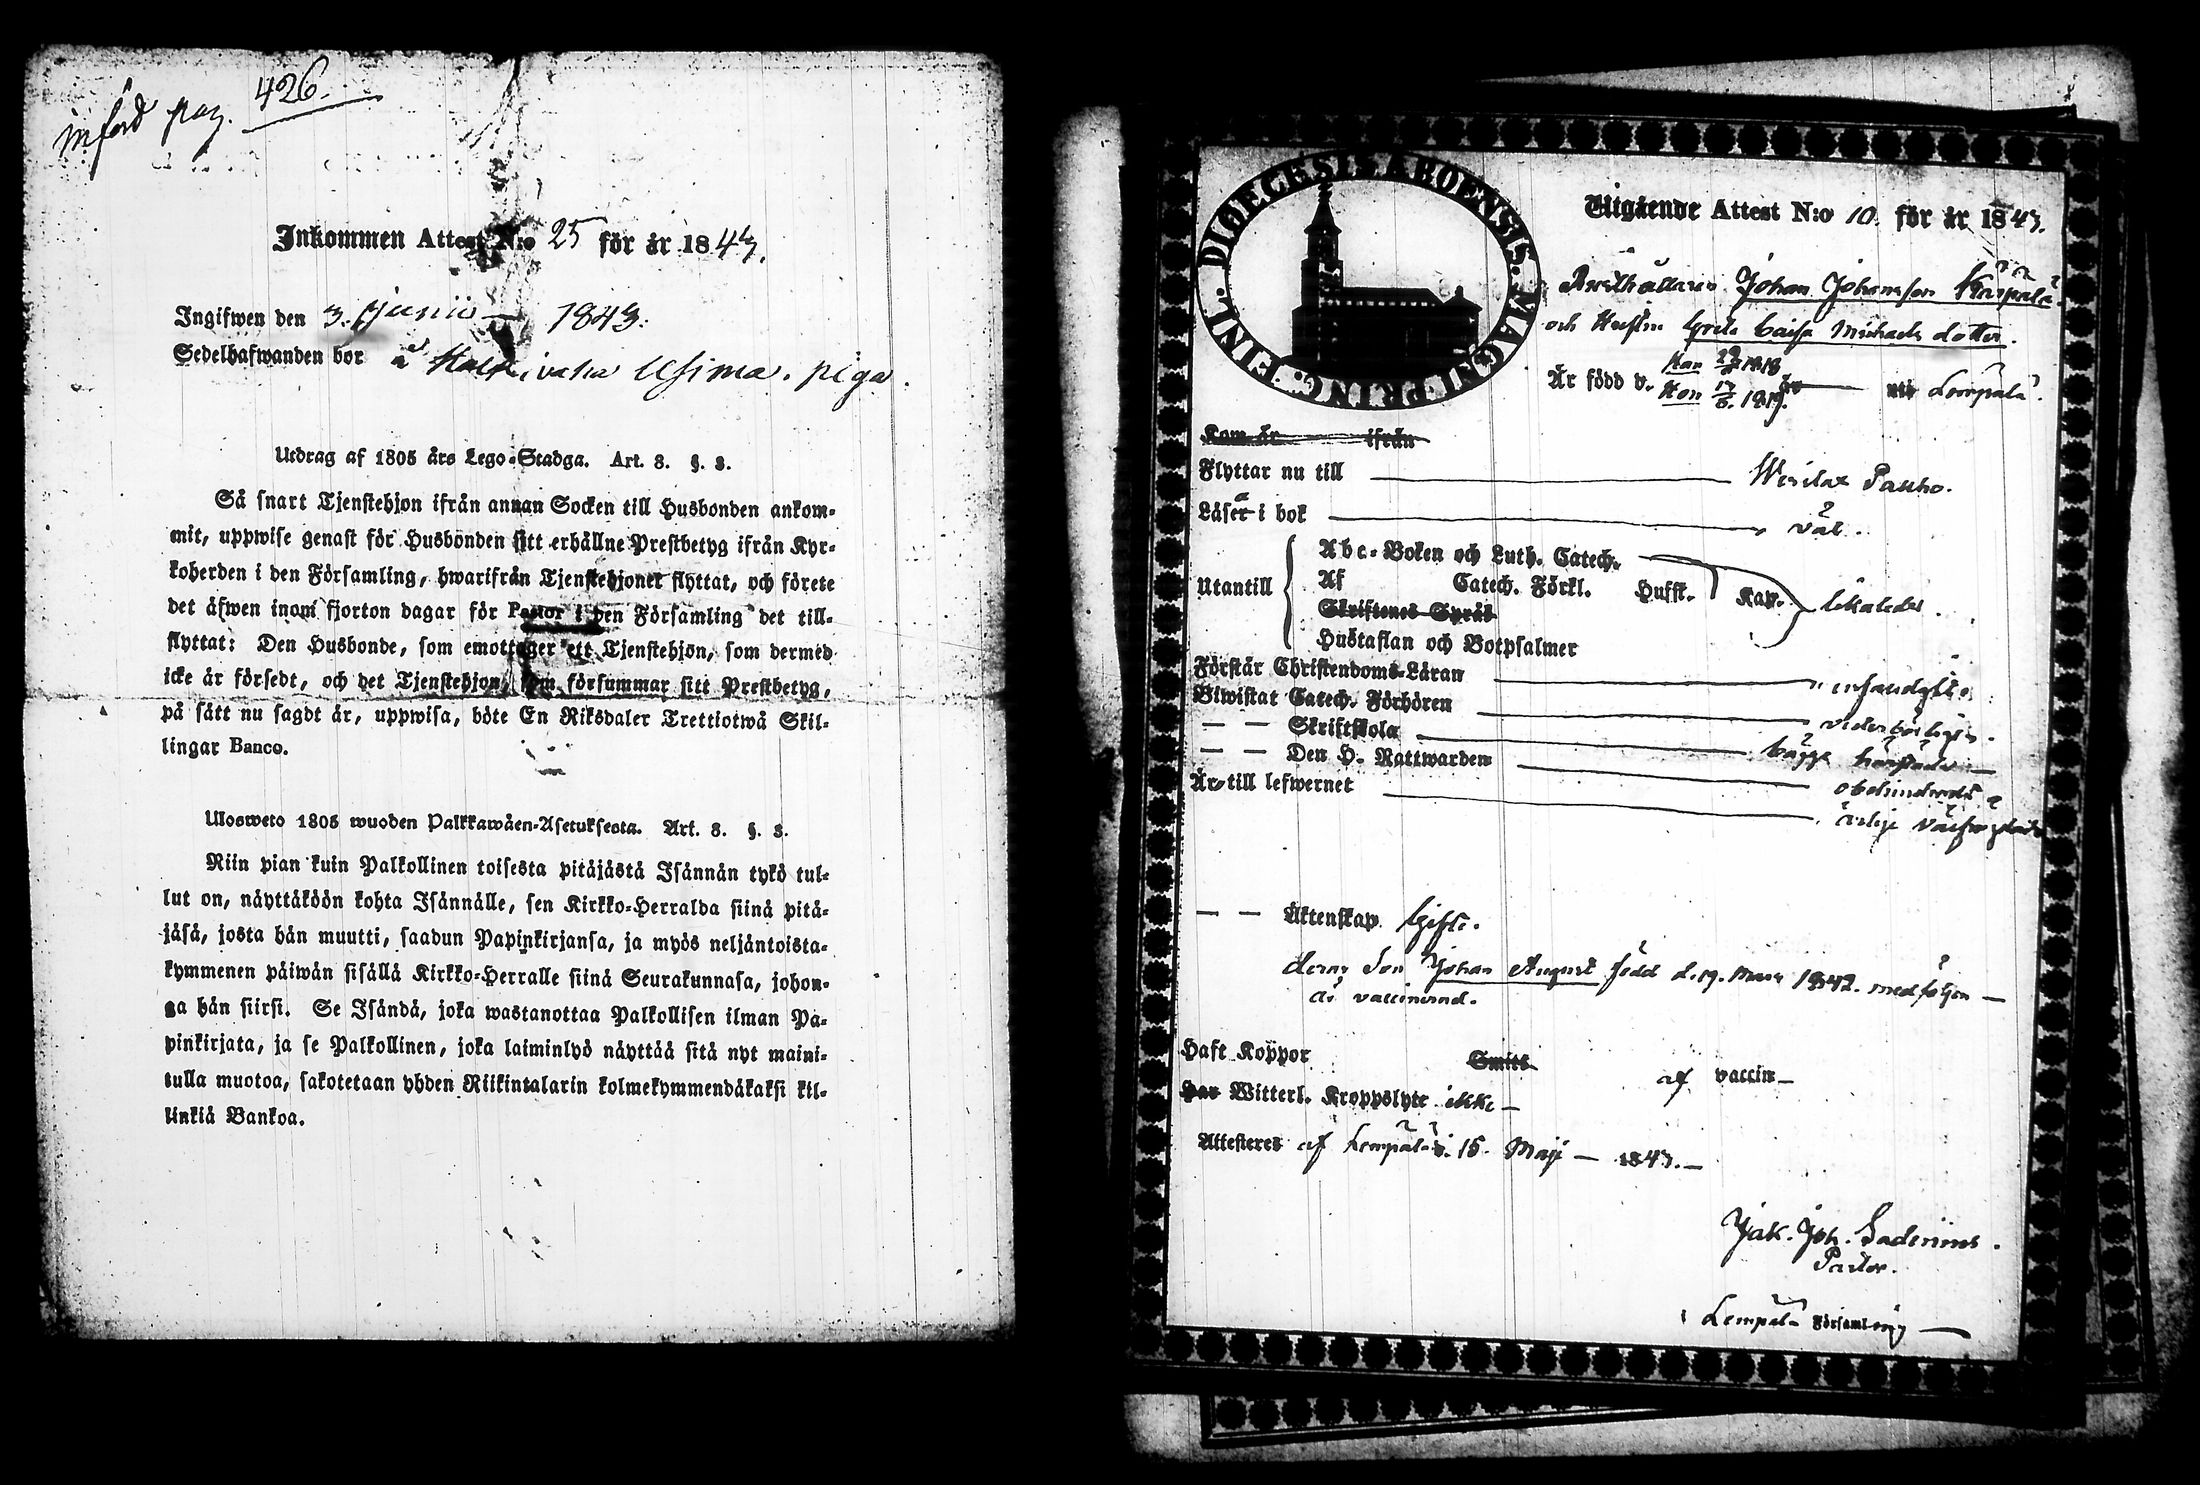 införd pag. 426.
Inkommen Attest N:o 25 för år 1843.
Ingifwen den 3. Junii 1843.
Sedelhafwanden bor å Uusima. piga.
Utdrag af 1805 års Lego-Stadga. Art. 8. §. 3.
Så snart Tjenstehjon ifrån annan Socken till Husbonden ankom-
mit, uppwise genast för Husbonden sitt erhållne Prestbetyg ifrån Kyr-
koherden i den Församling, hwarifrån Tjenstehjonet flyttat, och förete
det äfwen inom fjorton dagar för Pastor i den Församling det till-
flyttat: Den Husbonde, som emottager ett Tjenstehjon, som dermed
icke är försedt, och det Tjenstehjon, som försummar sitt Prestbetyg,
på sätt nu sagdt är, uppwisa, böte En Riksdaler Trettiotwå Skil-
lingar Banco.
Ulosweto 1805 wuoden Palkkawäen-Asetuksesta. Art. 8. §. 3.
Niin pian kuin Palkollinen toisesta pitäjästä Isännän tykö tul-
lut on, näyttäköön kohta Isännälle, sen Kirkko-Herralda siinä pitä-
jäsä, josta hän muutti, saadun Papinkirjansa, ja myös neljäntoista-
kymmenen päiwän sisällä Kirkko-Herralle siinä Seurakunnasa, johon-
ga hän siirsi. Se Isändä, joka wastanottaa Palkollisen ilman Pa-
pinkirjata, ja se Palkollinen, joka laiminlyö näyttää sitä nyt maini-
tulla muotoa, sakotetaan yhden Riikintalarin kolmekymmendäkaksi kil-
linkiä Bankoa.
DIOECESIS ABOENSIS. MAGNI PRINC. FINL.
Utgående Attest N:o 10. för år 1843.
Johan Johansson Kärpälä
och Hustru Greta Caisa Michaels dotter.
Är född d. Han 1818
Hon 17/6. 1819. år uti Lempälä.
Kom år ifrån
Flyttar nu till Wesilax
Läsa i bok väl.
Utantill
Abc-Boken och Luth. Catech.
Af Catech. Förkl. Hufst. Kap. likaledes.
Skriftenes Språk
Hustaflan och Botpsalmer
Förstår Christendoms-Läran
Biwistat Catech. Förhören vederbörligen.
— — Skriftskola bägge
— — Den H. Nattwarden obehindrade
Är till lefwernet ärlige
— — Äktenskap Gifte.
deras Son Johan August född d. 19. Mars 1842. medföljer —
är vaccinerad.
Haft Koppor Smitt af vaccin —
Har Witterl. Kroppslyte ikke —
Attesteres af Lempälä d. 15. Maji — 1843. —
Jak. Joh. Sadenius.
Pastor.
i Lempälä Församling —